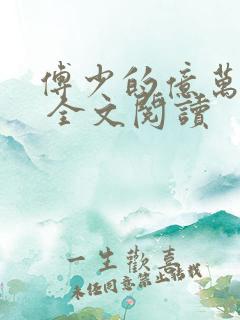 傅少的億萬
全文閱讀
一生歡喜
未經同意禁止轉載